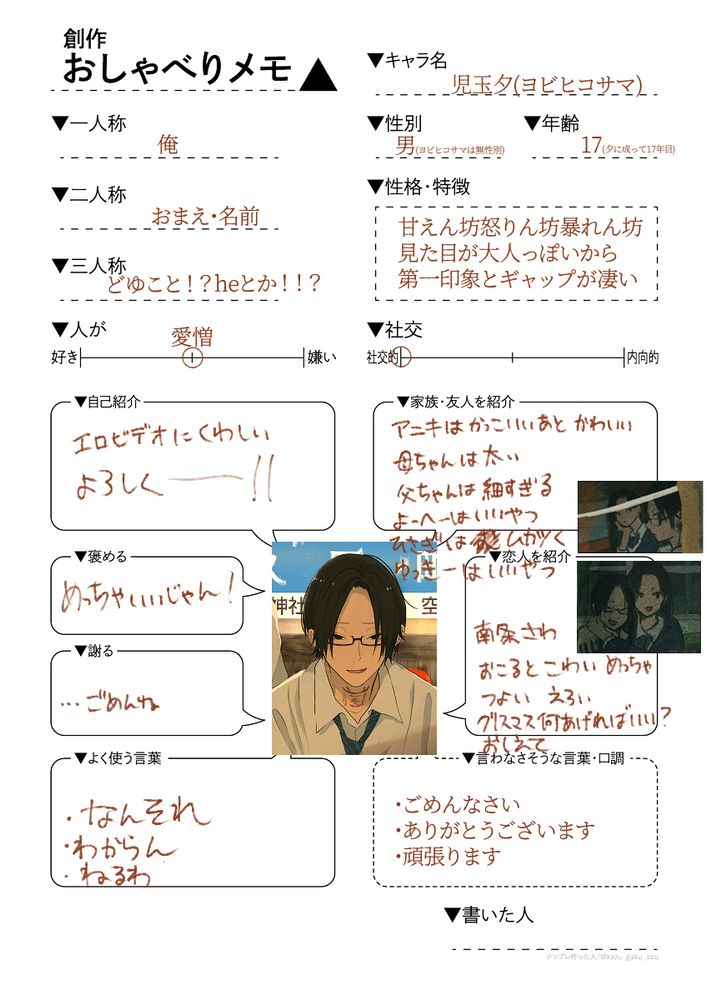 創作
おしゃべりメモ
▼キャラ名
児玉夕(ヨビヒコサマ)
▼一人称
俺
▼性別
男(ヨビヒコサマは無性別)
▼年齢
17(夕に成って17年目)
▼二人称
おまえ・名前
▼性格・特徴
甘えん坊怒りん坊暴れん坊
見た目が大人っぽいから
第一印象とギャップが凄い
▼三人称
どゆこと！？heとか！！？
▼人が
愛憎
好き
嫌い
▼社交
社交的
内向的
▼自己紹介
エロビデオにくわしい
よろしく――!!
▼家族・友人を紹介
アニキはかっこいいあと かわいい
母ちゃんは太い
父ちゃんは細すぎる
よーへーはいいやつ
ひさぎは ムカツク
ゆっきーはいいやつ
▼褒める
めっちゃいいじゃん!
▼恋人を紹介
南条さわ
おこるとこわい めっちゃ
つよい えろい
クリスマス何あげればいい?
おしえて
▼謝る
…ごめんね
神社
空
▼よく使う言葉
・なんそれ
・わからん
・ねるわ
▼言わなさそうな言葉・口調
・ごめんなさい
・ありがとうございます
・頑張ります
▼書いた人
テンプレ作った人:@kazu_gaku_sou